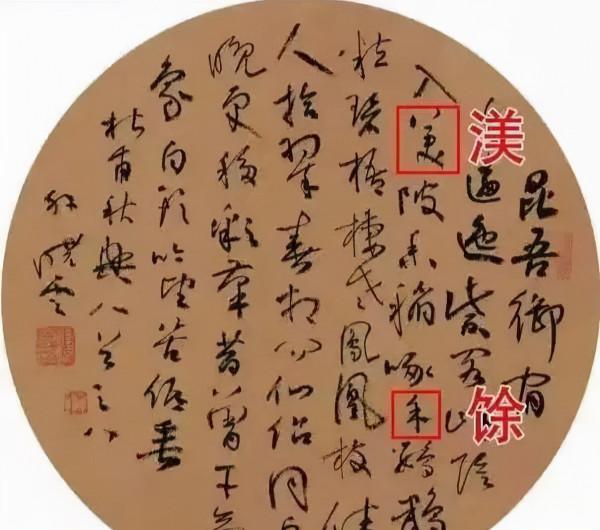 昆吾御宿
自逶迤紫阁峰陰
入美陂香稻啄禾鹦鹉
粒碧梧棲老鳳凰枝佳
人拾翠春相问仙侣同舟
晚更移彩筆昔曾干氣
象白头吟望苦低垂
杜甫秋興八首之八
孙晓云
渼
馀